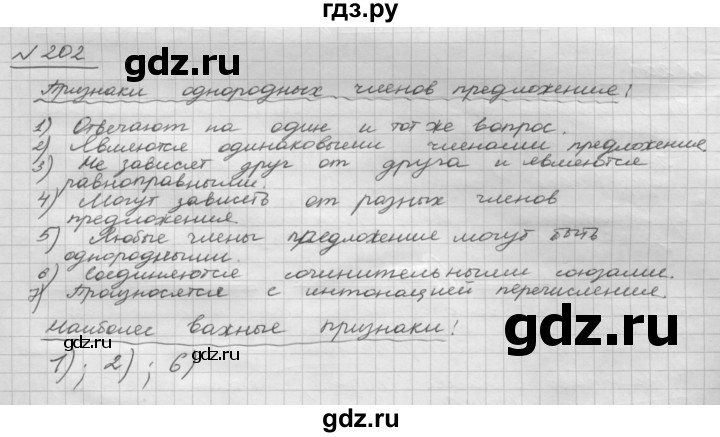 гдз.ру
№ 202
gdz.ru gdz.ru
Признаки однородных членов предложения!
1) Отвечают на один и тот же вопрос.
2) Являются одинаковыми членами предложения.
3) Не зависят друг от друга и являются
равноправными.
4) Могут зависеть от разных членов
предложения.
gdz.ru
5) Любые члены предложения могут быть
однородными.
6) Соединяются сочинительными союзами.
7) Произносятся с интонацией перечисления.
Наиболее важные признаки!
gdz.ru gdz.ru
1); 2); 6)
gdz.ru